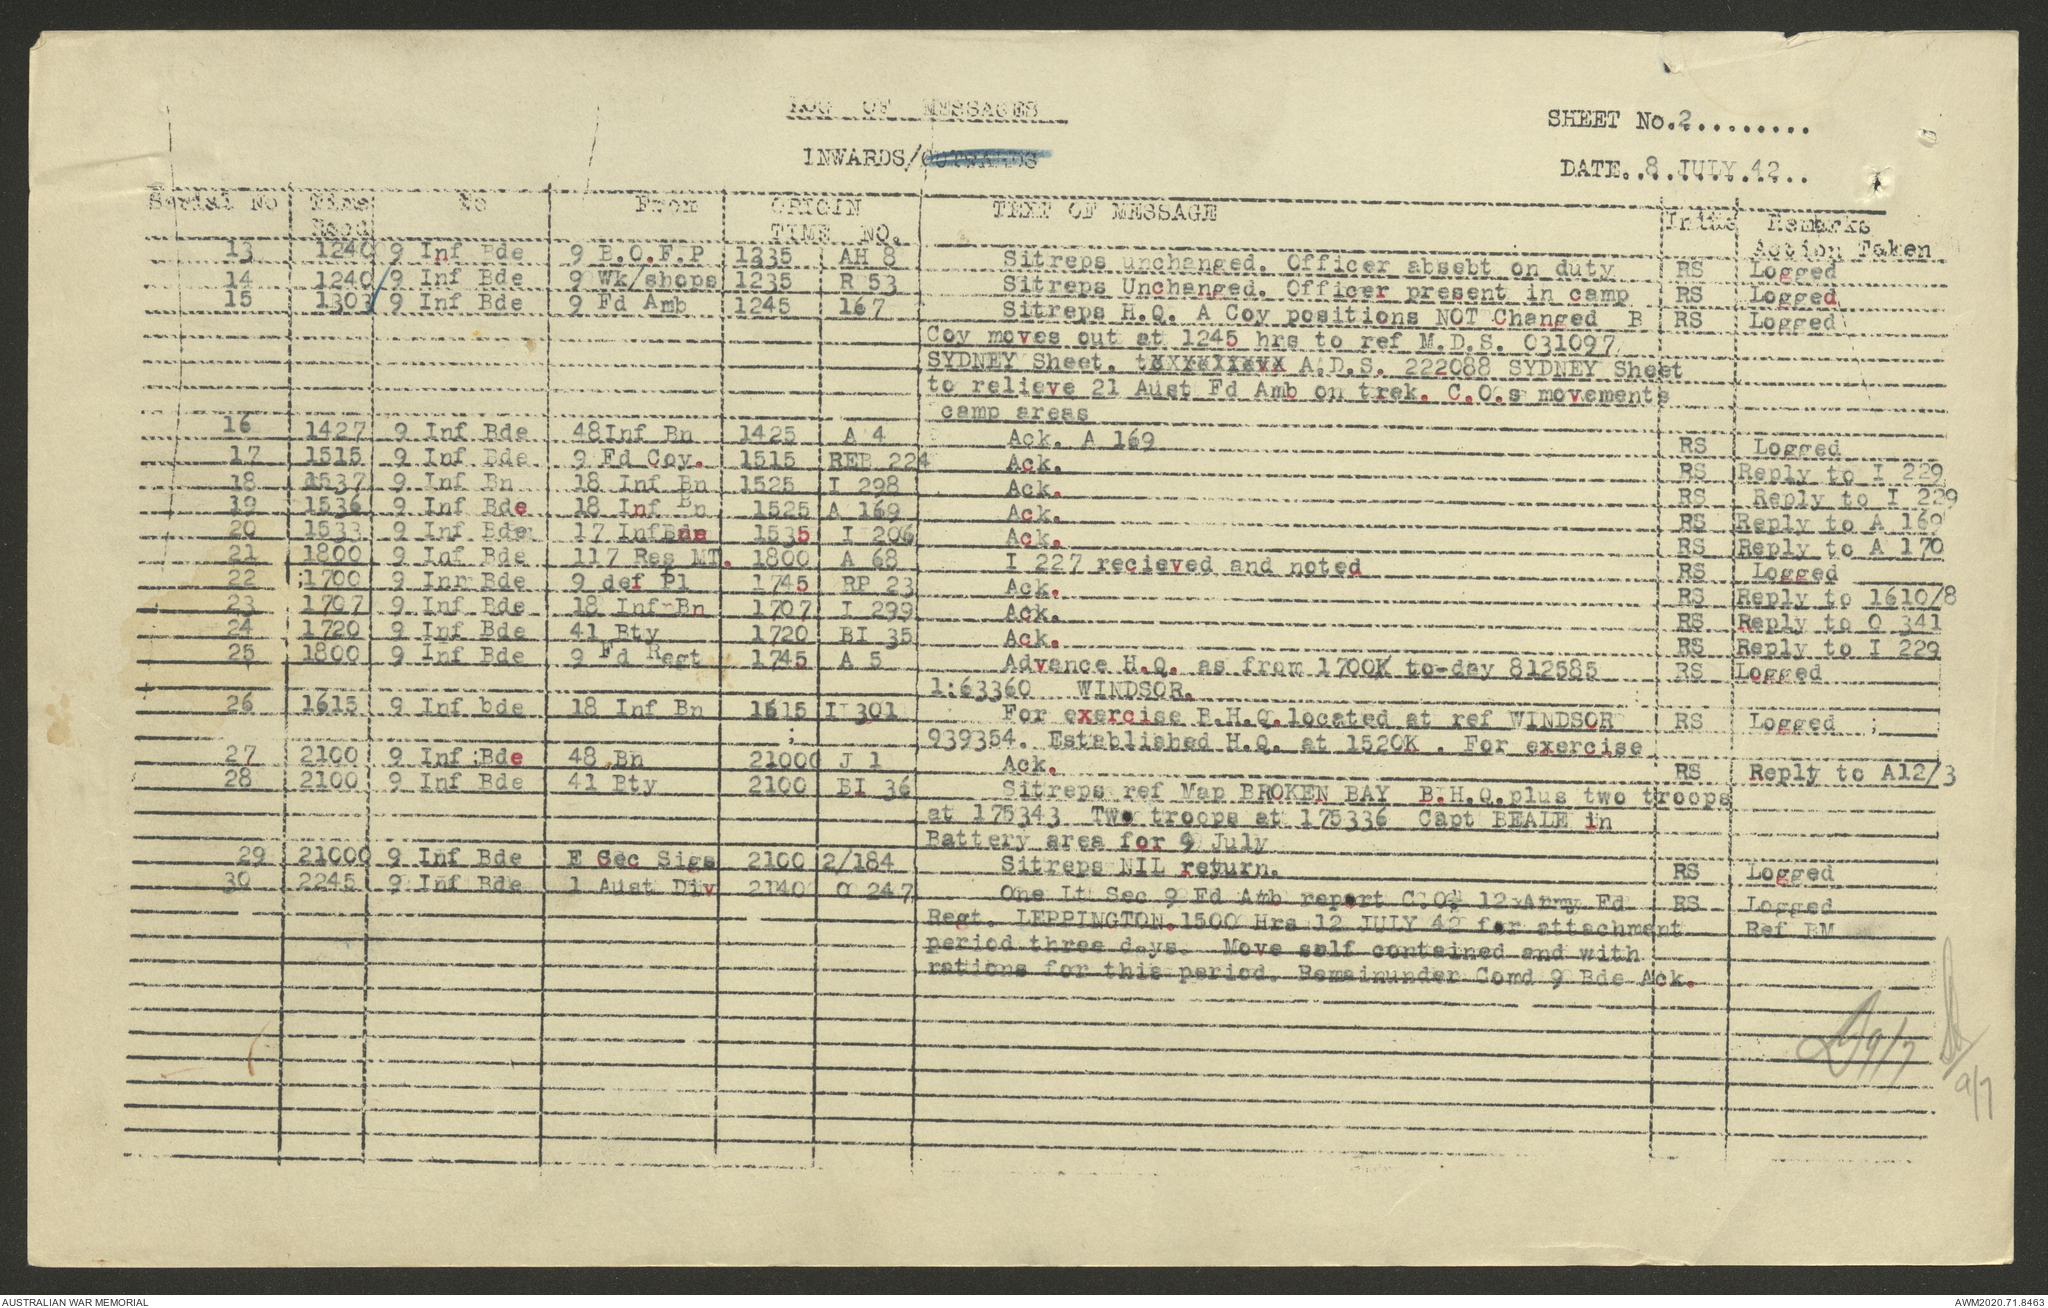 LOG OF MESSAGES
SHEET No.2.........
INWARDS/OUTWARDS
DATE..8.JULY.42...
Serial No Time To From ORIGIN TEXT OF MESSAGE Intls Remarks
Recd TIME NO. Action Taken
13 1240 9 Inf Bde 9 B.O.F.P 1235 AH 8 Sitreps unchanged. Officer absebt on duty RS Logged
14 1240 9 Inf Bde 9 Wk/shops 1235 R 53 Sitreps Unchanged. Officer present in camp RS Logged
15 1303 9 Inf Bde 9 Fd Amb 1245 167 Sitreps H.Q. A Coy positions NOT Changed B RS Logged
Coy moves out at 1245 hrs to ref M.D.S. 031097
SYDNEY Sheet. A.D.S. 222088 SYDNEY Sheet
to relieve 21 Aust Fd Amb on trek. C.O.s movements
camp areas
16 1427 9 Inf Bde 48Inf Bn 1425 A 4 Ack. A 169 RS Logged
17 1515 9 Inf Bde 9 Fd Coy. 1515 REB 224 Ack. RS Reply to I 229
18 1537 9 Inf Bn 18 Inf Bn 1525 I 298 Ack. RS Reply to I 229
19 1536 9 Inf Bde 18 Inf Bn 1525 A 169 Ack. RS Reply to A 169
20 1533 9 Inf Bde 17 InfBde 1535 I 206 Ack. RS Reply to A 170
21 1800 9 Inf Bde 117 Res MT. 1800 A 68 I 227 recieved and noted RS Logged
22 1700 9 Inf Bde 9 def Pl 1745 RP 23 Ack. RS Reply to 1610/8
23 1707 9 Inf Bde 18 Inf Bn 1707 I 299 Ack. RS Reply to O 341
24 1720 9 Inf Bde 41 Bty 1720 BI 35 Ack. RS Reply to I 229
25 1800 9 Inf Bde 9 Fd Regt 1745 A 5 Advance H.Q. as from 1700K to-day 812585 RS Logged
1:63360 WINDSOR.
26 1615 9 Inf bde 18 Inf Bn 1615 I 301 For exercise B.H.Q.located at ref WINDSOR RS Logged ;
939354. Established H.Q. at 1520K . For exercise
27 2100 9 Inf Bde 48 Bn 21000 J 1 Ack. RS Reply to A12/3
28 2100 9 Inf Bde 41 Bty 2100 BI 36 Sitreps ref Map BROKEN BAY B.H.Q.plus two troops
at 175343 Two troops at 175336 Capt BEALE in
Battery area for 9 July
29 21000 9 Inf Bde E Sec Sigs 2100 2/184 Sitreps NIL return. RS Logged
30 2245 9 Inf Bde 1 Aust Div 2140 O 247 One Lt Sec 9 Fd Amb report C.O. 12 Army Fd RS Logged
Regt. LEPPINGTON.1500 Hrs 12 JULY 42 for attachment Ref BM
period three days. Move self contained and with
rations for this period. Remainunder Comd 9 Bde Ack.
9/7
9/7
AUSTRALIAN WAR MEMORIAL
AWM2020.71.8463